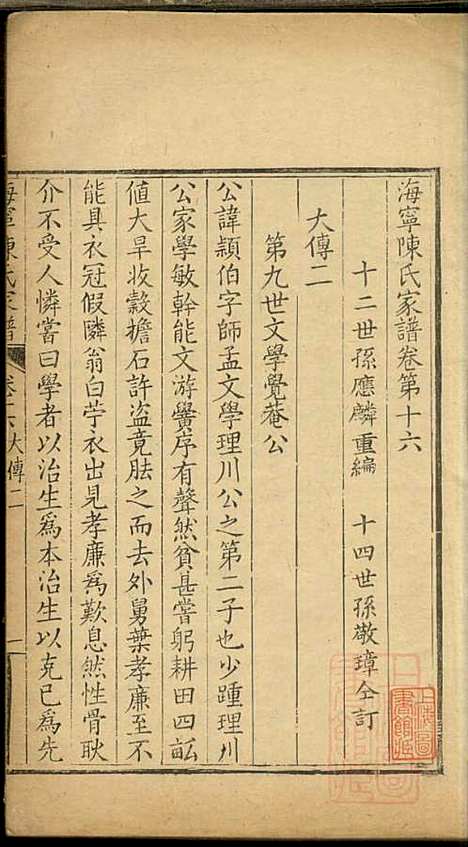 海寧陳氏家譜卷第十六
十二世孫應麟重編　十四世孫敬璋仝訂
大傳二
第九世文學覺菴公
公諱穎伯字師孟文學理川公之第二子也少踵理川
公家學敏幹能文游黌序有聲然貧甚嘗躬耕田四畝
値大旱收穀擔石許盜竟胠之而去外舅葉孝廉至不
能具衣冠假隣翁白苧衣出見孝廉爲歎息然性骨耿
介不受人憐嘗曰學者以治生爲本治生以克已爲先
海寧陳氏家譜　卷十六大傳二　一
上海圖書館藏